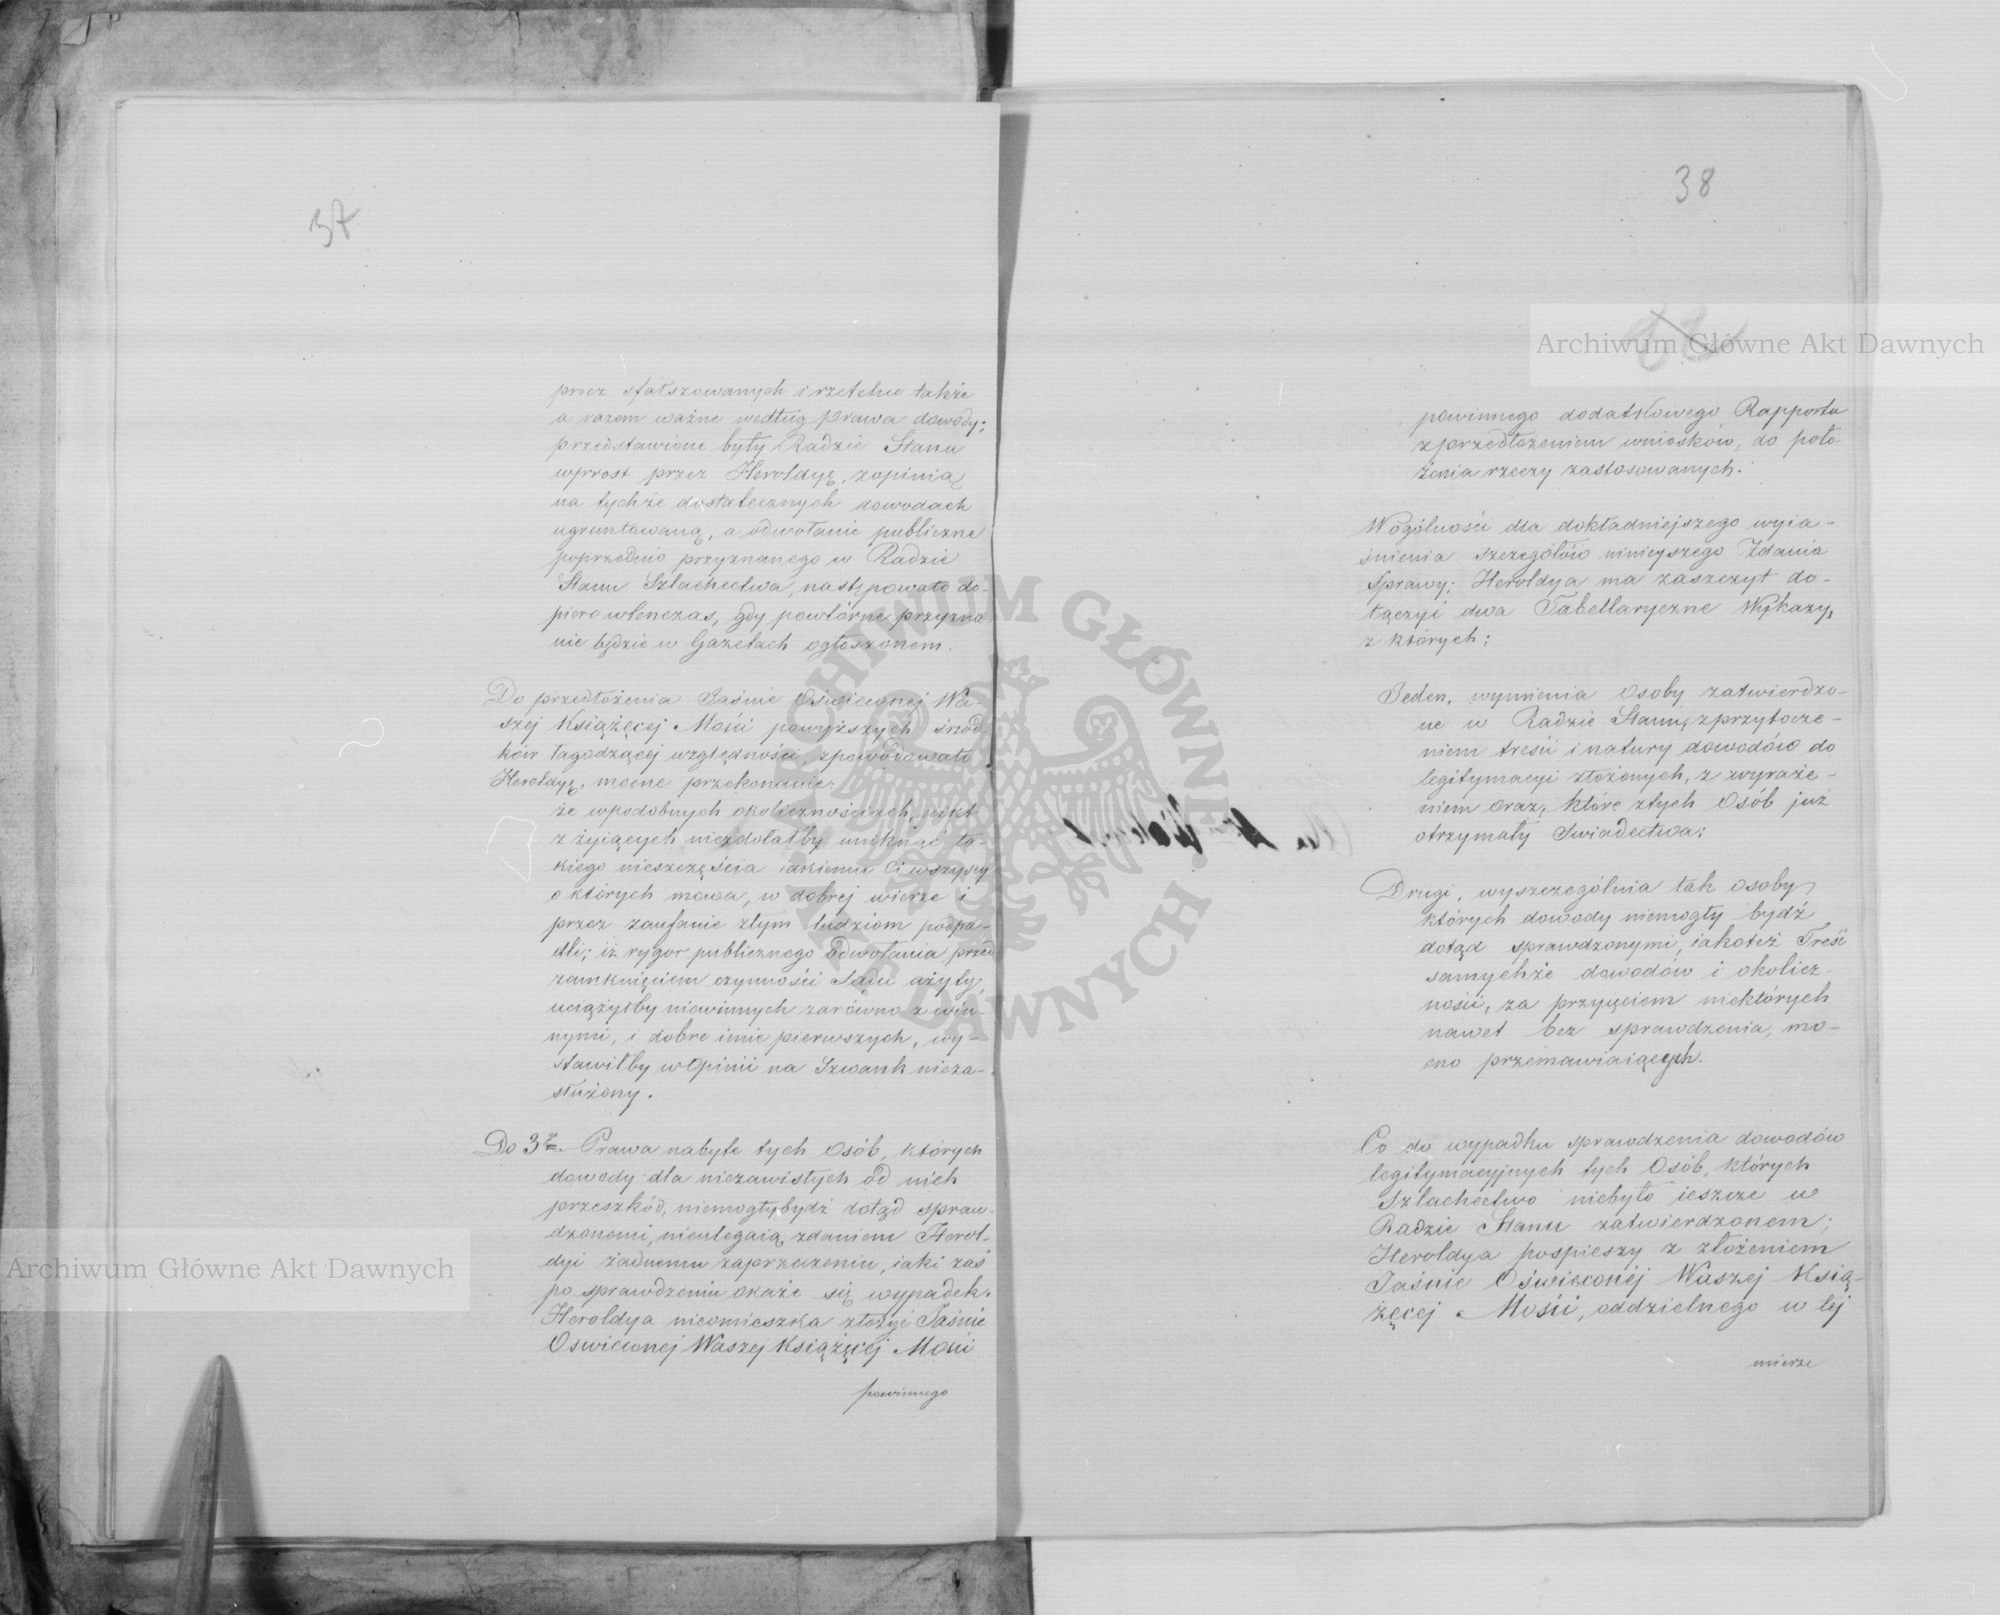 37
procz sfałszowanych i rzetelne także
a razem ważne według Prawa dowody;
przedstawione były Radzie Stanu
wprost przez Heroldyę, zopinią
na tychże dostatecznych dowodach
ugruntowaną, a odwołanie publiczne
poprzednio przyznanego w Radzie
Stanu Szlachectwa, następowało do-
piero wtenczas, gdy powtórne przyzna
nie będzie w Gazetach ogłoszonem.
Do przedłożenia Jaśnie Oświeconej Wa-
szej Książęcej Mości powyższych środ
ków łagodzącej względności, spowodowało
Heroldyę, mocne przekonanie:
że wpodobnych okolicznościach, nikt
z żyiących niezdołałby uniknąć ta-
kiego nieszczęścia iakiemu Ci wszyscy
o których mowa, w dobrej wierze i
przez zaufanie złym ludziom podpa-
dli; iż rygor publicznego Odwołania przed
zamknięciem czynności Sądu użyty,
uciążyłby niewinnych zarówno z win-
nymi, i dobre imie pierwszych, wy-
stawiłby wOpinii na Szwank nieza-
służony.
Do 3º Prawa nabyte tych Osób, których
dowody dla niezawisłych od nich
przeszkód, niemogłybydź dotąd spraw-
dzonemi, nieulegaią zdaniem Herol-
dyi żadnemu zaprzeczeniu, iaki zaś
po sprawdzeniu okaże się wypadek.
Heroldya nieomieszka złożyć Jaśnie
Oświeconej Waszej Książęcej Mości
powinnego
38
powinnego dodatkowego Rapportu
zprzedłożeniem wniosków, do poło-
żenia rzeczy zastosowanych.
Wogólności dla dokładniejszego wyia-
śnienia szczegółów niniejszego Zdania
Sprawy; Heroldya ma zaszczyt do-
łączyć dwa Tabellaryczne Wykazy,
z których;
Jeden, wymienia osoby zatwierdzo-
ne w Radzie Stanu, zprzytocze-
niem treści i natury dowodów do
legitymacyi złożonych, z wyraże-
niem oraz, które ztych Osób już
otrzymały Swiadectwa;
Drugi, wyszczególnia tak osoby,
których dowody niemogły bydź
dotąd sprawdzonymi, iakoteż Treść
samychże dowodów i okolicz-
ności, za przyjęciem niektórych
nawet bez sprawdzenia, mo-
cno przemawiaiących.
Co do wypadku sprawdzenia dowodów
legitymacyjnych tych Osób, których
Szlachectwo niebyło ieszcze w
Radzie Stanu zatwierdzonem;
Heroldya pospieszy z złożeniem
Jaśnie Oświeconéj Waszej Ksią-
żęcej Mości, oddzielnego w tej
mierze
Archiwum Główne Akt Dawnych
Archiwum Główne Akt Dawnych
ARCHIWUM GŁÓWNE AKT DAWNYCH